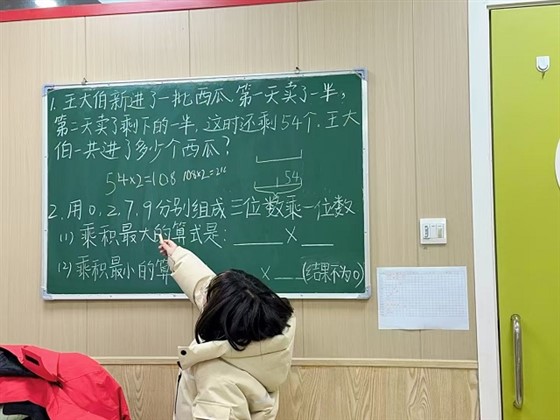 1. 王大伯新进了一批西瓜.第一天卖了一半,
第二天卖了剩下的一半,这时还剩54个.王大
伯一共进了多少个西瓜?
54×2=108 108×2=216
54
2.用0.2.7.9分别组成三位数乘一位数
(1)乘积最大的算式是:____×___
(2)乘积最小的算
×___(结果不为0)